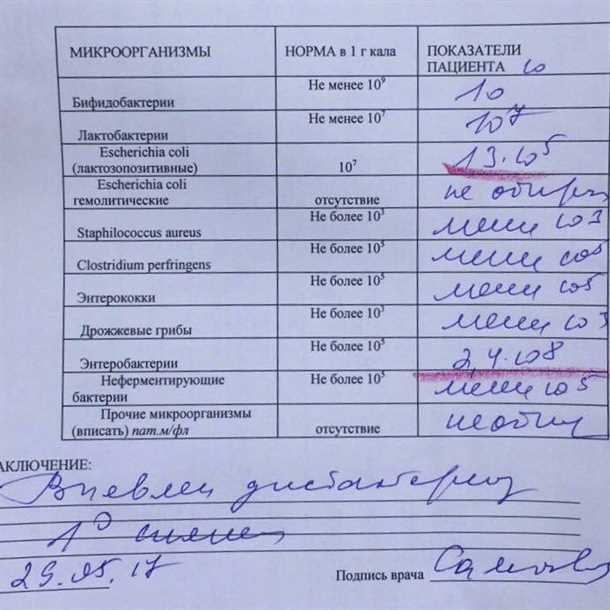 МИКРООРГАНИЗМЫ НОРМА в 1 г кала ПОКАЗАТЕЛИ ПАЦИЕНТА
Бифидобактерии Не менее 10⁹ 10¹⁰
Лактобактерии Не менее 10⁷ 10⁷
Escherichia coli (лактозопозитивные) 10⁷ 13·10⁵
Escherichia coli гемолитические отсутствие не обнар
Staphilococcus aureus Не более 10³ менее 10³
Clostridium perfringens Не более 10⁵ менее 10⁵
Энтерококки Не более 10⁵ менее 10⁵
Дрожжевые грибы Не более 10³ менее 10³
Энтеробактерии Не более 10⁵ 2,4·10⁸
Неферментирующие бактерии Не более 10⁵ менее 10⁵
Прочие микроорганизмы (вписать) пат.м/фл отсутствие не обнар
АКЛЮЧЕНИЕ:
дисбактериоз
29.05.17
Подпись врача